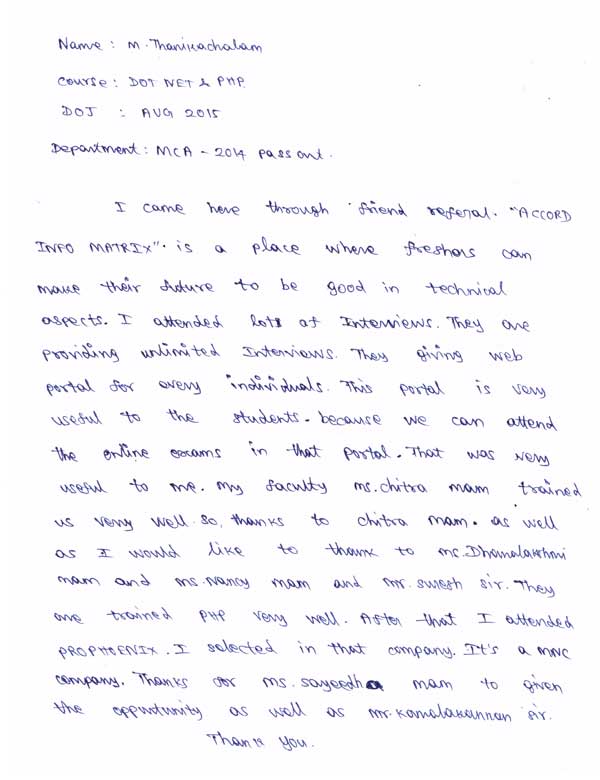 Name : M. Thanikachalam
Course : DOT NET & PHP
DOJ : AUG 2015
Department : MCA - 2014 pass out.
I came here through friend referal. "ACCORD
INFO MATRIX". is a place where freshers can
make their future to be good in technical
aspects. I attended lots of Interviews. They are
providing unlimited Interviews. They giving web
portal for every individuals. This portal is very
useful to the students. because we can attend
the online exams in that portal. That was very
useful to me. My faculty ms. chitra mam trained
us very well. So, thanks to chitra mam. as well
as I would like to thank to ms. Dhanalakshmi
mam and ms. Nancy mam and Mr. suresh sir. They
are trained PHP very well. After that I attended
PROPHOENIX. I selected in that company. It's a MNC
company. Thanks for ms. sayeedha mam to given
the oppurtunity as well as Mr. Kamalakannan sir.
Thank You.